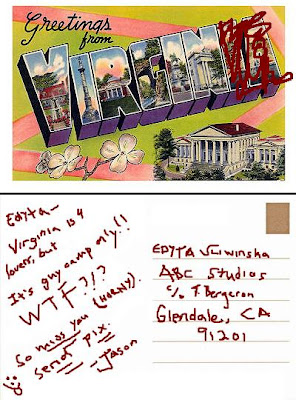 Greetings
from
VIRGINIA
EDYTA-
Virginia is 4
lovers, but
It's guy camp only!!
WTF?!?
(HORNY).
So miss you
send pix.
-Jason
EDYTA Sliwinska
ABC Studios
c/o T. Bergeron
Glendale, CA
91201